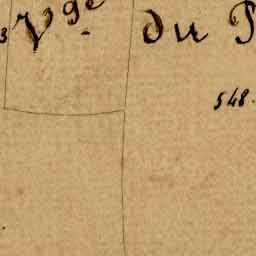 3 Vge du P
548.